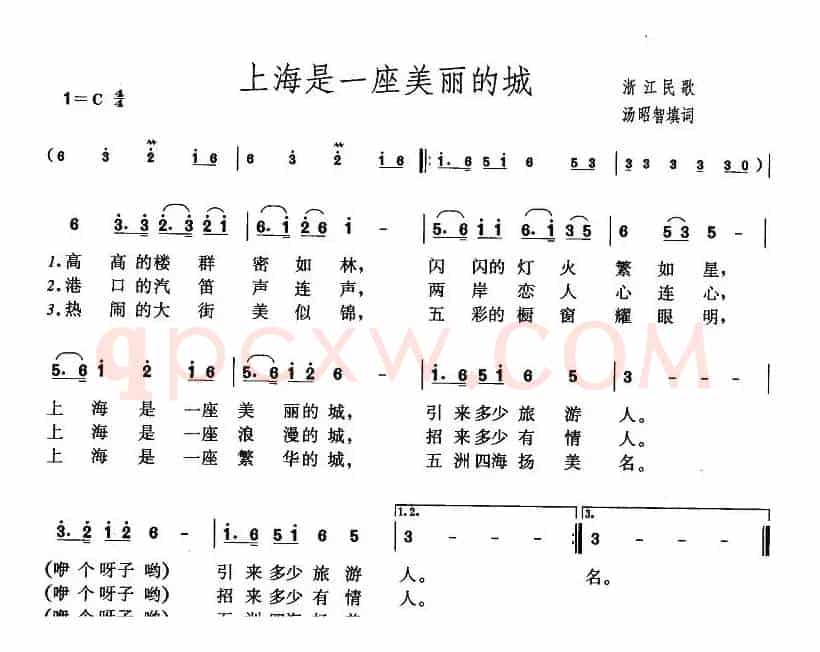 上海是一座美丽的城
1=C 4/4
浙江民歌
汤昭智填词
(6 3 2 1 6 | 6 3 2 1 6 |: 1. 6 5 1 6 5 3 | 3 3 3 3 3 0 ) |
6 3. 3 2. 3 2 1 | 6. 1 2 6 1 - | 5. 6 1 1 6. 1 3 5 | 6 5 3 5 - |
1.高 高的楼 群 密 如 林, 闪 闪的 灯 火 繁 如 星,
2.港 口的汽 笛 声 连 声, 两 岸 恋 人 心 连 心,
3.热 闹的大 街 美 似 锦, 五 彩的 橱 窗 耀 眼 明,
qpcxw.COM
5. 6 1 2 1 | 5. 6 1 2 6 - | 1. 6 5 1 6 5 | 3 - - - |
上 海 是 一座 美 丽的 城, 引 来多少 旅 游 人。
上 海 是 一座 浪 漫的 城, 招 来多少 有 情 人。
上 海 是 一座 繁 华的 城, 五 洲四海 扬 美 名。
1.2. 3.
3. 2 1 2 6 - | 1. 6 5 1 6 5 | 3 - - - :| 3 - - - ||
(咿 个 呀子 哟) 引 来 多少 旅 游 人。 名。
(咿 个 呀子 哟) 招 来 多少 有 情 人。
(咿 个 呀子 哟) 五 洲 四海 扬 美